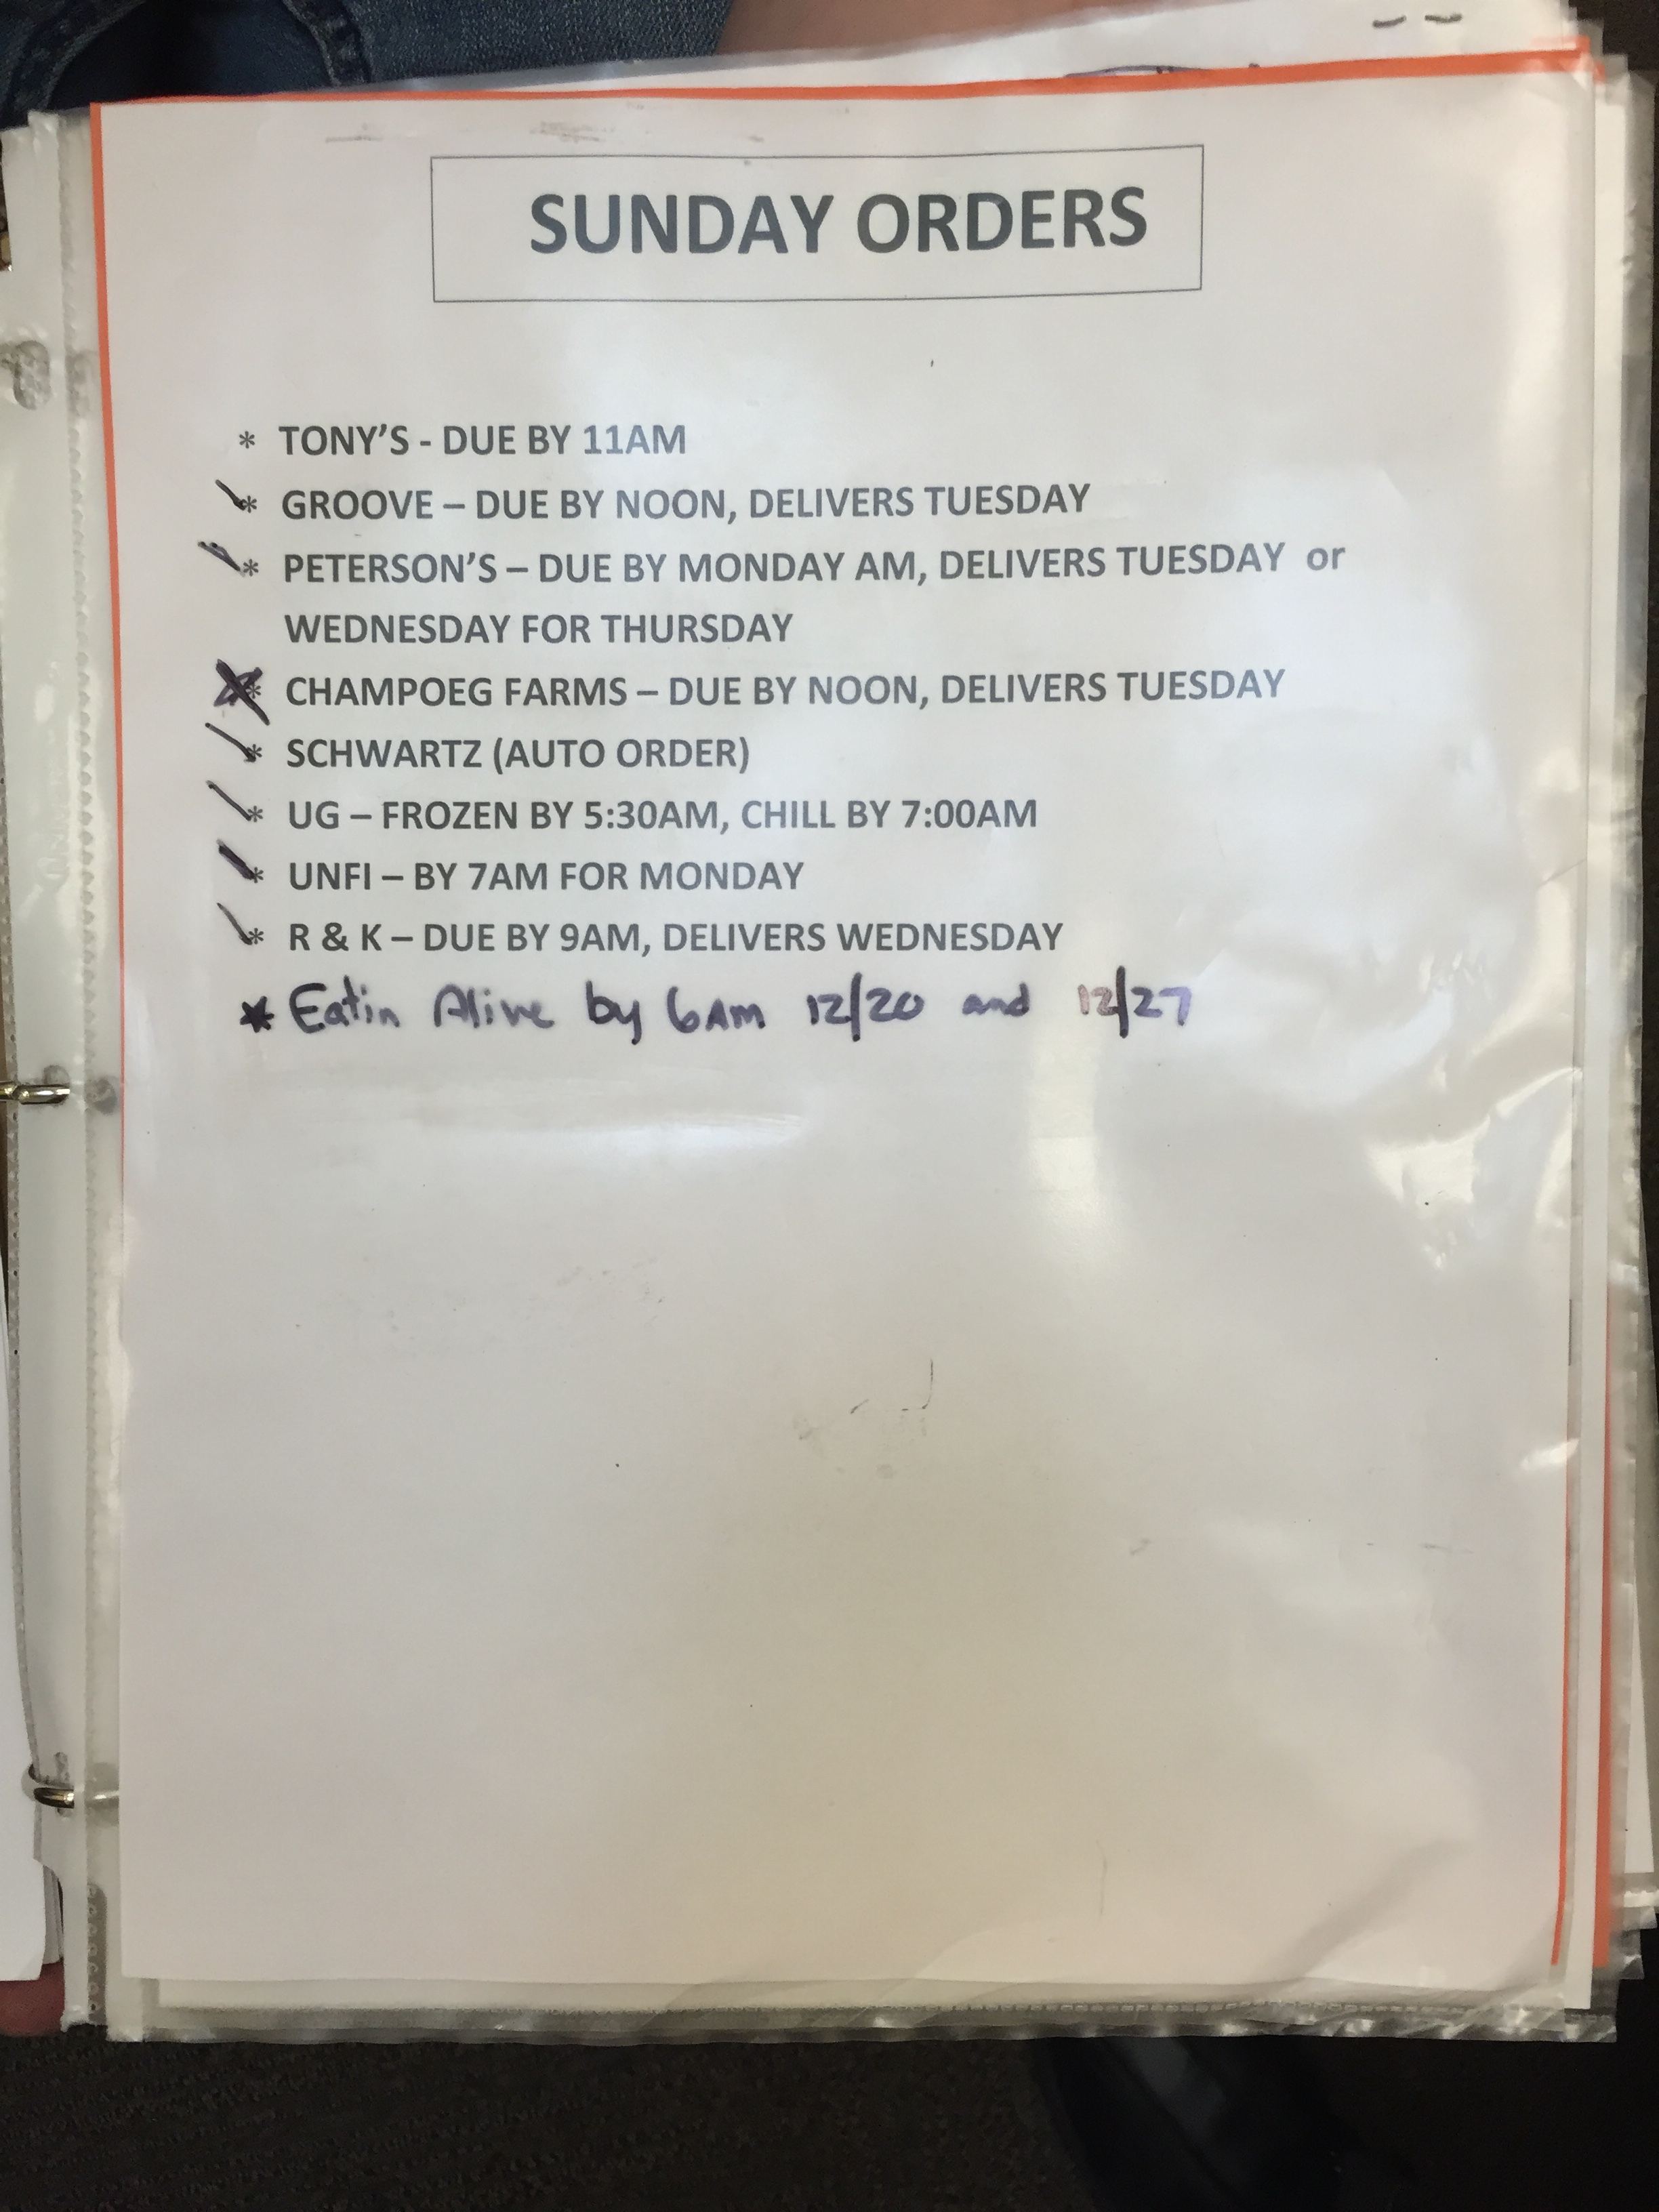 SUNDAY ORDERS
* TONY'S - DUE BY 11AM
* GROOVE – DUE BY NOON, DELIVERS TUESDAY
* PETERSON'S – DUE BY MONDAY AM, DELIVERS TUESDAY or
WEDNESDAY FOR THURSDAY
* CHAMPOEG FARMS – DUE BY NOON, DELIVERS TUESDAY
* SCHWARTZ (AUTO ORDER)
* UG – FROZEN BY 5:30AM, CHILL BY 7:00AM
* UNFI – BY 7AM FOR MONDAY
* R & K – DUE BY 9AM, DELIVERS WEDNESDAY
* Eatin Alive by 6AM 12/20 and 12/27